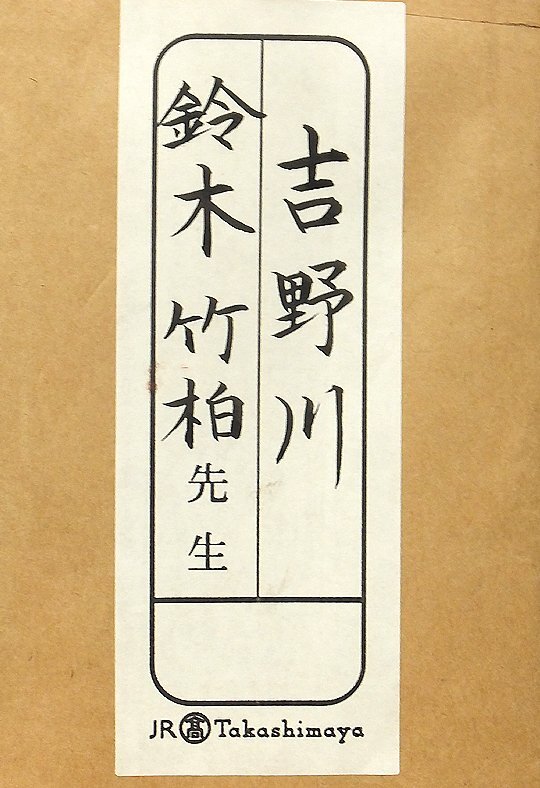 吉野川
鈴木竹柏先生
JR髙Takashimaya